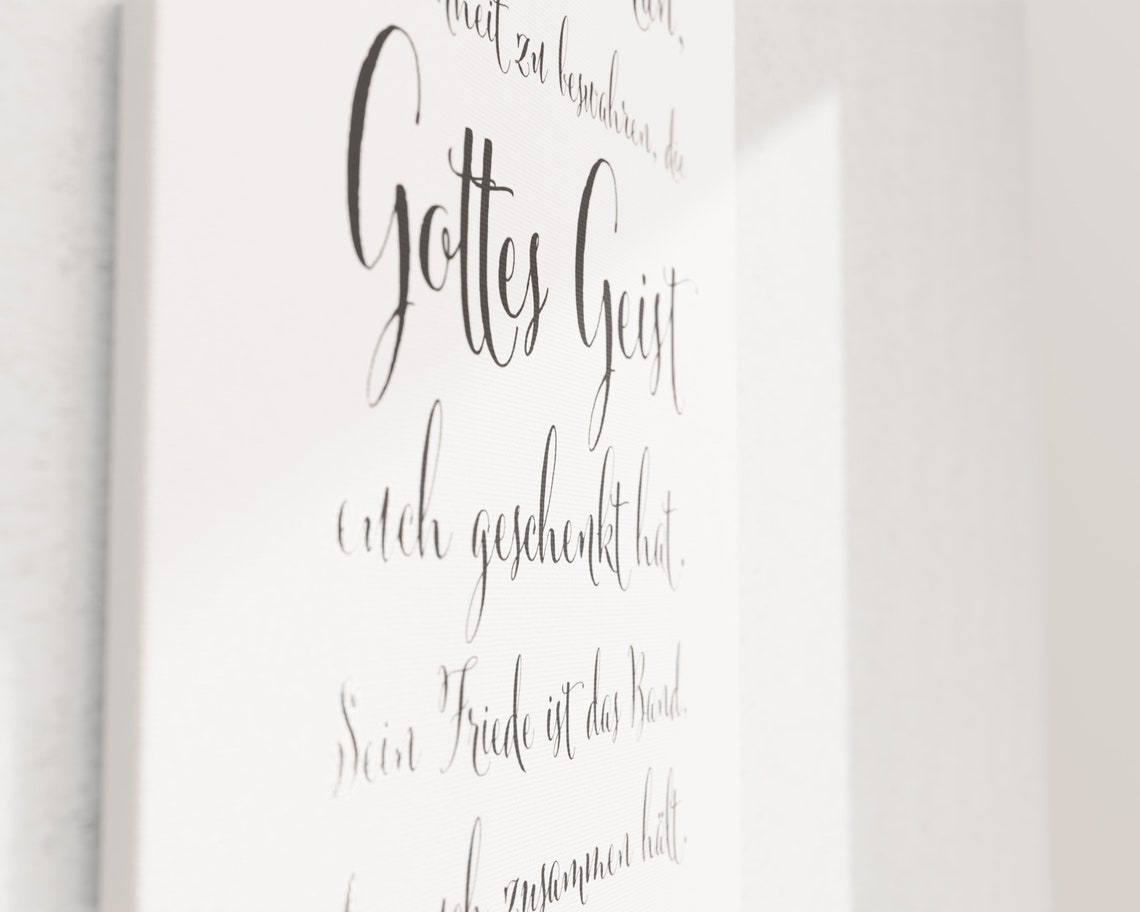 zu bewahren, die
Gottes Geist
euch geschenkt hat.
Sein Friede ist das Band,
zusammen hält.